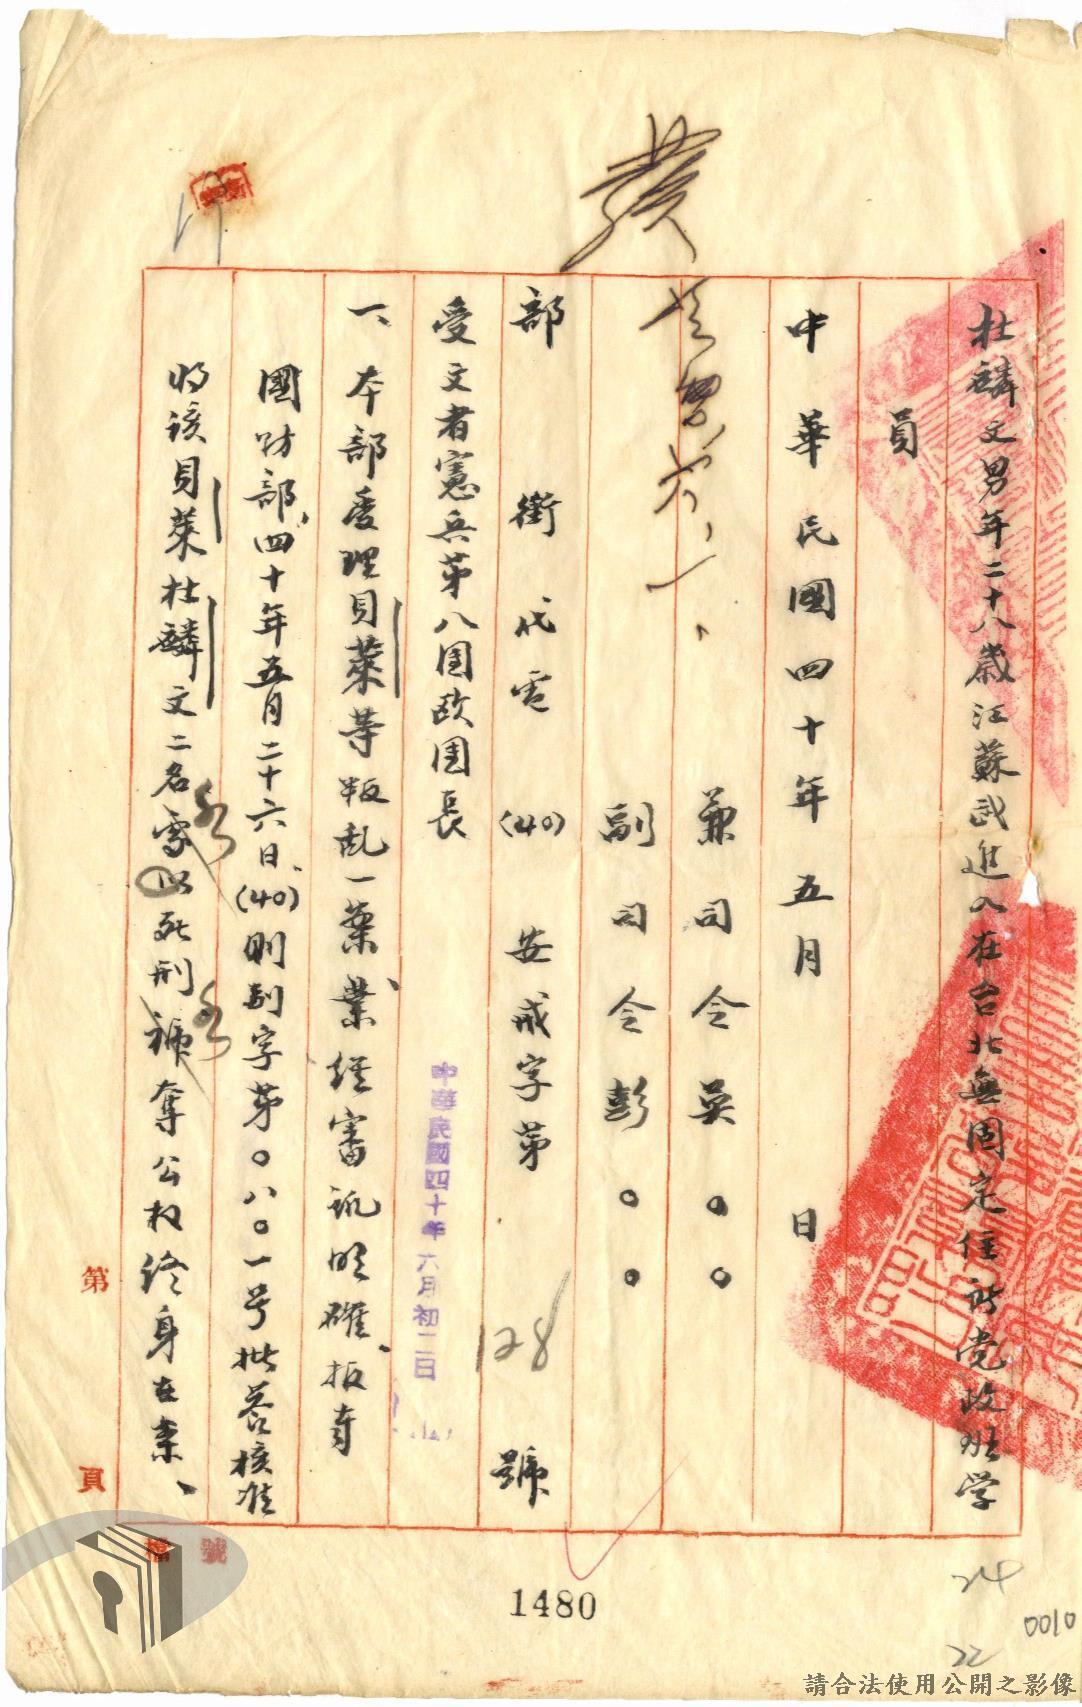 杜麟文男年二十八歲江蘇武進人在台北無固定住所党政班学
員
中華民國四十年五月 日
兼司令吳○○
副司令彭○○
部銜代電 (40) 安戒字第 128 號
受文者憲兵第八團歐團長
中華民國四十年六月初二日
一、本部受理貝萊等叛乱一案、業經審訊明確、报奉
國防部、四十年五月二十六日、(40)則副字第○八○一号批答核准
將该貝萊杜麟文二名處以死刑褫奪公权終身在案、
第 頁
檔 號
1480
24
0010
22
請合法使用公開之影像